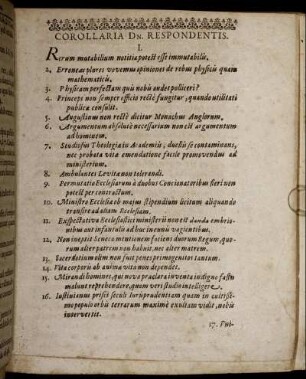 COROLLARIA DN. RESPONDENTIS.
I.
Rerum mutabilium notitia potest esse immutabilis.
2. Erroneas plures vovemus opiniones de rebus physicis quam
mathematicis.
3. Physicam perfectam quis nobis audet polliceri?
4. Princeps non semper officio recte fungitur, quando utilitati
publicæ consulit.
5. Augustinus non recte dicitur Monachus Anglorum.
6. Argumentum absolute necessarium non est argumentum
ad hominem.
7. Studiosus Theologiæ in Academiis, duellis se contaminans,
nec probata vita emendatione facile promovendus ad
ministerium.
8. Ambulantes Levitæ non tolerandi.
9. Permutatio Ecclesiarum à duobus Concionatoribus fieri non
potest per contractum.
10. Ministro Ecclesiæ ob majus stipendium licitum aliquando
transire ad aliam Ecclesiam.
11. Exspectativa Ecclesiastici ministerii non est danda embrio-
nibus aut infantulo ad huc in cunis vagientibus.
12. Non ineptit Seneca mentionem faciens duorum Regum, quo-
rum alter patrem non habuit, nec alter matrem.
13. Sacerdotium olim non fuit penes primogenitos tantum.
14. Vita corporis ab anima vita mea dependet.
15. Mirandi homines, qui nova præclara inventa indigne fastu
malunt reprehendere, quam veri studio intelligere.
16. Justinianus prisci seculi Jurisprudentiam quam in cultissi-
mo populo orbis terrarum maxime exultam vidit, nobis
intervertit.
17. Pul-